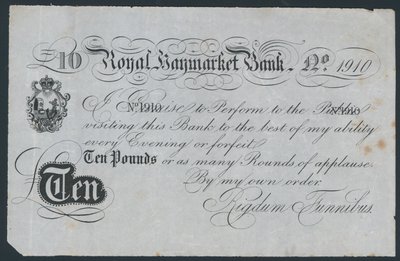 £10 Royal Haymarket Bank. No. 1910
I Promise to Perform to the Public
No 1910 No 1910
visiting this Bank to the best of my ability
every Evening or forfeit
Ten Pounds or as many Rounds of applause.
By my own order
Ten
Rigdum Funnibus.